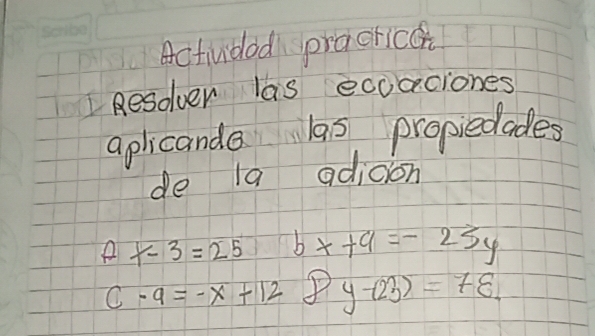 Actividad practica
I Resolver las ecuaciones
aplicando las propiedades
de la adición
A x-3=25 b x+9=-23y
C -9=-x+12 D y-(23)=78.